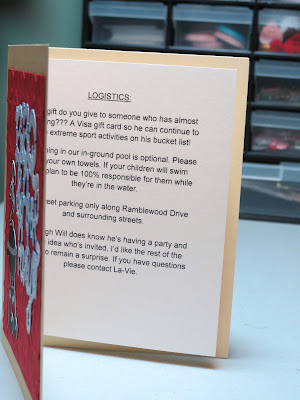 LOGISTICS:
gift do you give to someone who has almost
??? A Visa gift card so he can continue to
extreme sport activities on his bucket list!
in our in-ground pool is optional. Please
your own towels. If your children will swim
plan to be 100% responsible for them while
they're in the water.
parking only along Ramblewood Drive
and surrounding streets.
Will does know he's having a party and
idea who's invited, I'd like the rest of the
remain a surprise. If you have questions
please contact La-Vie.